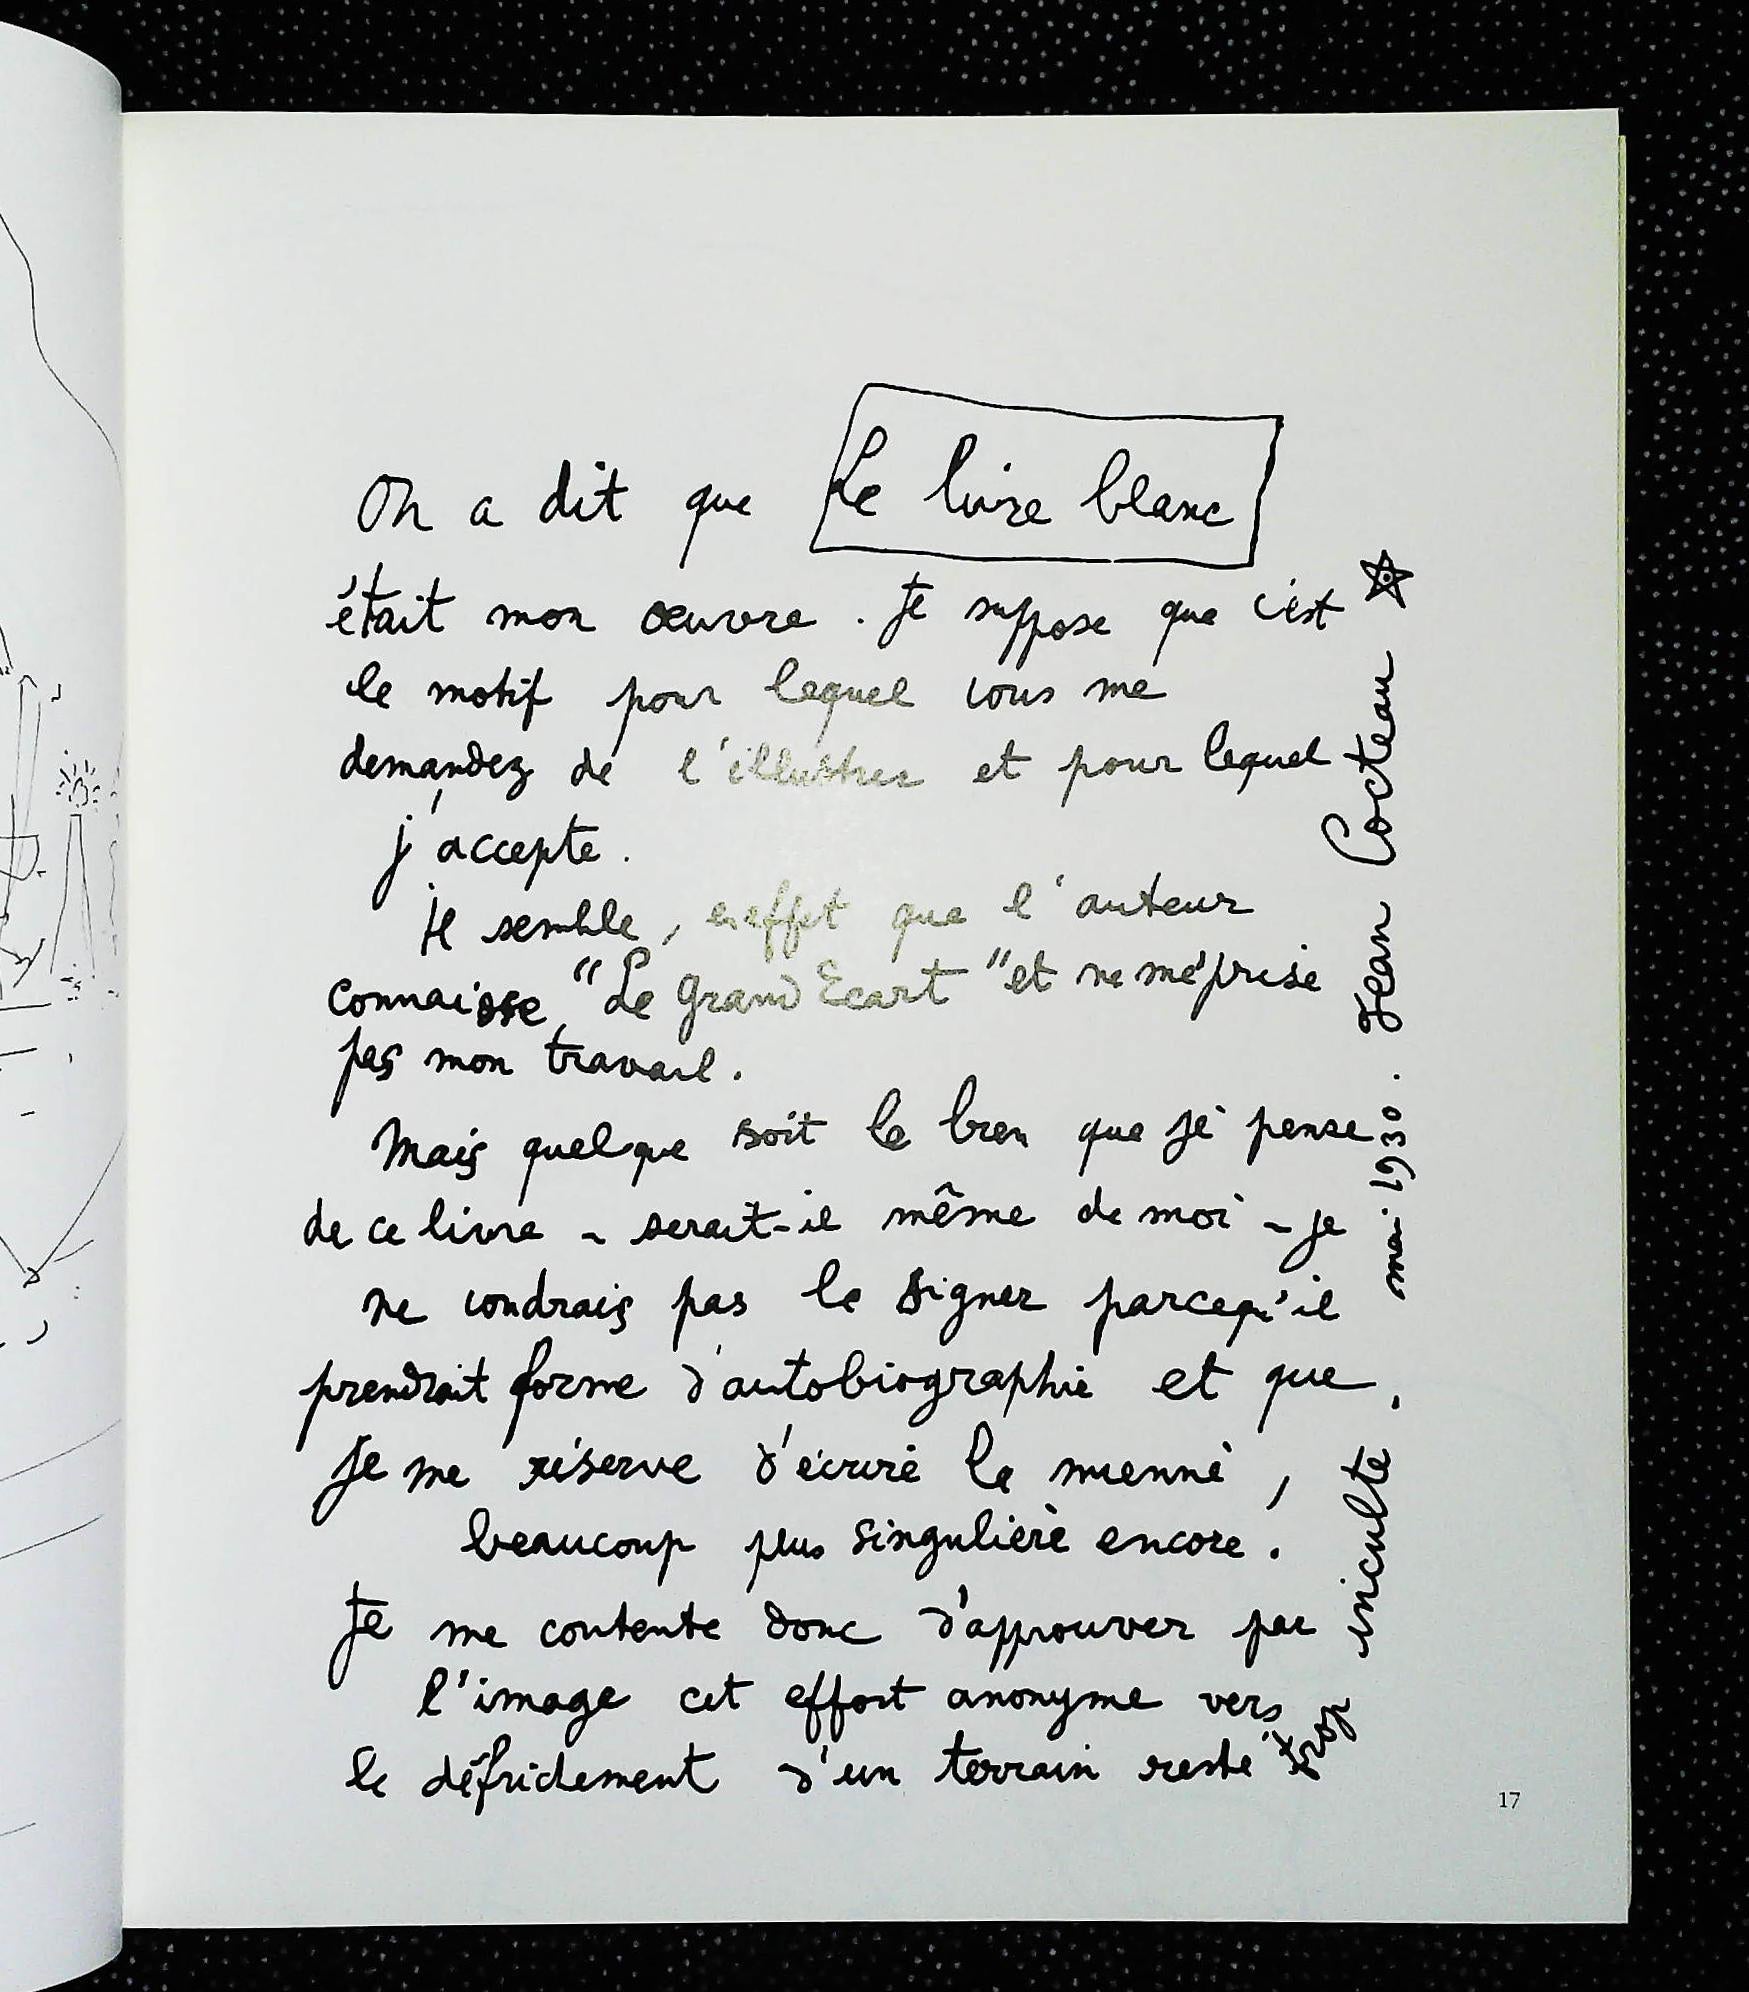 On a dit que Le livre blanc
était mon œuvre. Je suppose que c'est
le motif pour lequel vous me
demandez de l'illustrer et pour lequel
j'accepte.
Il semble, en effet que l'auteur
connaisse "Le Grand Ecart" et ne méprise
pas mon travail.
Mais quelque soit le bien que je pense
de ce livre - serait-il même de moi - je
ne voudrais pas le signer parcequ'il
prendrait forme d'autobiographie et que
je me réserve d'écrire la mienne,
beaucoup plus singulière encore.
Je me contente donc d'approuver par
l'image cet effort anonyme vers
le défrichement d'un terrain resté trop
inculte.
mai 1930. Jean Cocteau
17